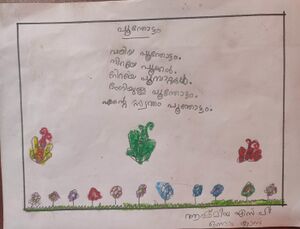 പൂന്തോട്ടം
വലിയ പൂന്തോട്ടം.
നിറയെ പൂക്കൾ.
നിറയെ പൂമ്പാറ്റകൾ.
ഭംഗിയുള്ള പൂന്തോട്ടം.
എന്റെ സ്വന്തം പൂന്തോട്ടം.
എസ് പി
ഒന്നാം ക്ലാസ്